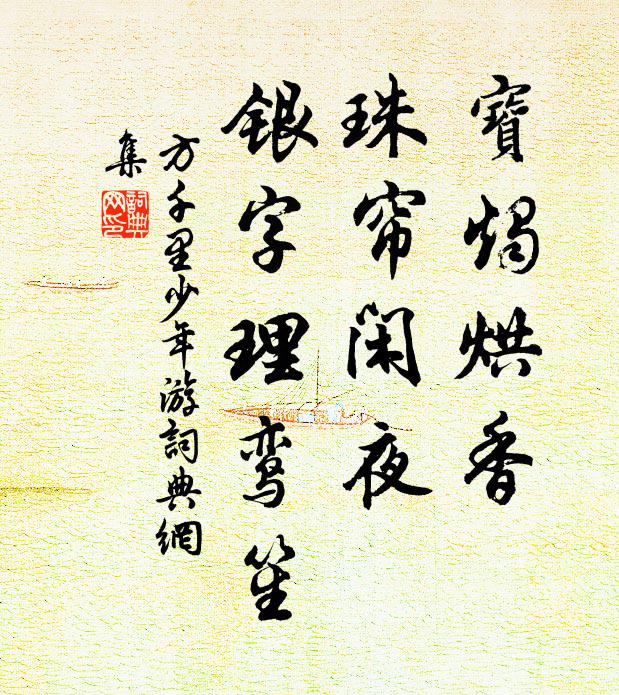 寶燭烘香
珠帘闲夜
银字理鸾笙
方千里少年游詞典網
集
詞典
网印